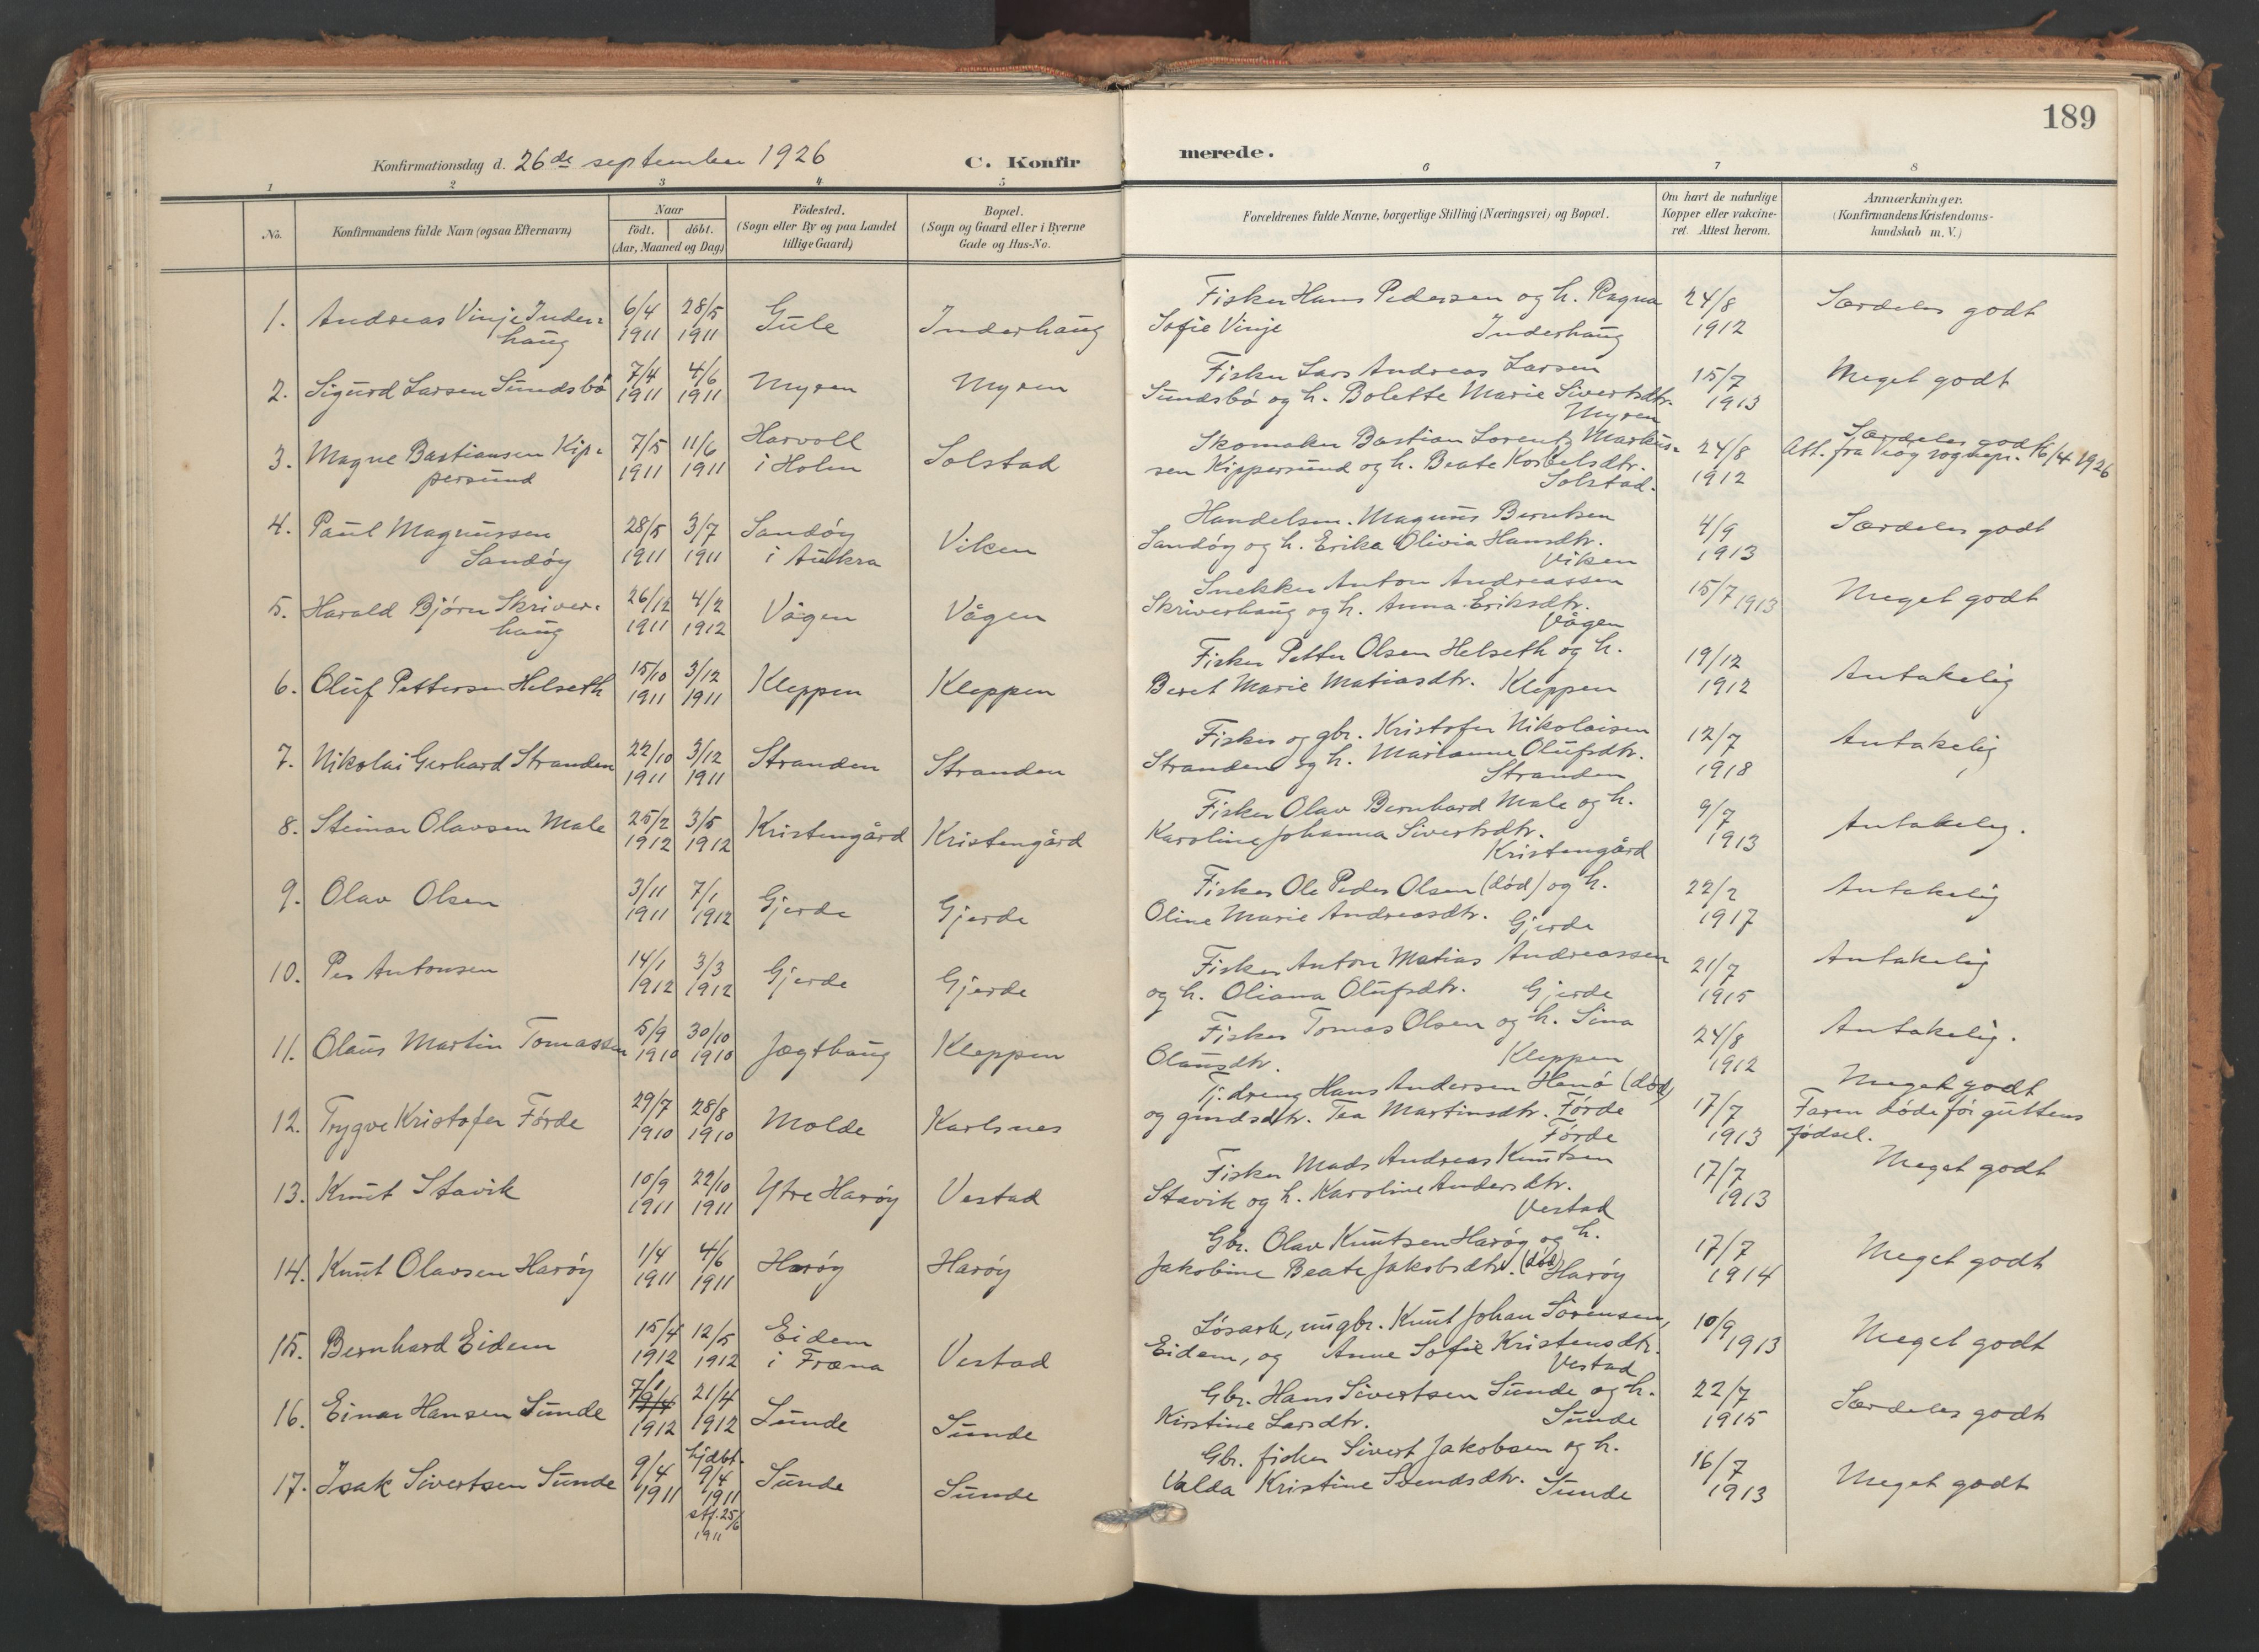 189
Konfirmationsdag d. 26de september 1926
C. Konfirmerede.
1 2 3 4 5 6 7 8
No.
Konfirmandens fulde Navn (ogsaa Efternavn)
Naar
födt. döbt.
(Aar, Maaned og Dag)
Födested.
(Sogn eller By og paa Landet
tillige Gaard)
Bopæl.
(Sogn og Gaard eller i Byerne
Gade og Hus-No.
Forældrenes fulde Navne, borgerlige Stilling (Næringsvei) og Bopæl.
Om havt de naturlige
Kopper eller vakcine-
ret. Attest herom.
Anmærkninger.
(Konfirmandens Kristendoms-
kundskab m. V.)
1. Andreas Vinje Inder= 6/4 28/5 Gule Inderhaug Fisker Hans Pedersen og h. Ragna 24/8 Særdeles godt
haug 1911 1911 Sofie Vinje Inderhaug 1912
2. Sigurd Larsen Sundsbö 7/4 4/6 Myren Myren Fisker Lars Andreas Larsen 15/7 Meget godt
1911 1911 Sundsbö og h. Bolette Marie Sivertsdtr. 1913
Myren
3. Magne Bastiansen Kip= 7/5 11/6 Harvoll Solstad Skomaker Bastian Lorentz Markus= 24/8 Særdeles godt
persund 1911 1911 i Holm sen Kippersund og h. Beate 1912 Att. fra Veøy sognepr. 16/4 1926
Solstad.
4. Paul Magnussen 28/5 3/7 Sandöy Viken Handelsm. Magnus Berntsen 4/9 Særdeles godt
Sandöy 1911 1911 i Aukra Sandöy og h. Erika Olivia Hansdtr. 1913
Viken
5. Harald Björn Skriver= 26/12 4/2 Vågen Vågen Snekker Anton Andreassen 15/7 1913 Meget godt
haug 1911 1912 Skriverhaug og h. Anna Eriksdtr.
Vågen
6. Oluf Pettersen Helseth 15/10 3/12 Kleppen Kleppen Fisker Petter Olsen Helseth og h. 19/12 Antakelig
1911 1911 Beret Marie Matiasdtr. Kleppen 1912
7. Nikolai Gerhard Stranden 22/10 3/12 Stranden Stranden Fisker og gbr. Kristofer Nikolaisen 12/7 Antakelig
1911 1911 Stranden og h. Marianne Olufsdtr. 1918
Stranden
8. Steinar Olavsen Male 25/2 3/5 Kristengård Kristengård Fisker Olav Bernhard Male og h. 9/7 Antakelig.
1912 1912 Karoline Johanna Sivertsdtr. 1913
Kristengård
9. Olav Olsen 3/11 7/1 Gjerde Gjerde Fisker Ole Peder Olsen (död) og h. 22/2 Antakelig
1911 1912 Oline Marie Andreasdtr. Gjerde 1917
10. Per Antonsen 14/1 3/3 Gjerde Gjerde Fisker Anton Matias Andreassen 21/7 Antakelig
1912 1912 og h. Oliana Olufsdtr. Gjerde 1915
11. Olaus Martin Tomassen 5/9 30/10 Jægthaug Kleppen Fisker Tomas Olsen og h. Sina 24/8 Antakelig.
1910 1910 Olausdtr. Kleppen 1912
12. Trygve Kristofer Förde 29/7 28/8 Molde Karlsnes Tj. dreng Hans Andersen Henö (död) 17/7 Meget godt
1910 1910 og grndsdtr. Tea Martinsdtr. Förde 1913 Faren döde för guttens
Förde födsel.
13. Knut Stavik 10/9 22/10 Ytre Haröy Vestad Fisker Mads Andreas Knutsen 17/7 Meget godt
1911 1911 Stavik og h. Karoline Andersdtr. 1913
Vestad
14. Knut Olavsen Haröy 1/4 4/6 Haröy Haröy Gbr. Olav Knutsen Haröy og h. 17/7 Meget godt
1911 1911 Jakobine Beate Jakobsdtr. (död) Haröy 1914
15. Bernhard Eidem 15/4 12/5 Eidem Vestad Lösarb, ungbr. Knut Johan Sörensen, 10/9 1913 Meget godt
1912 1912 i Fræna Eidem, og Anne Sofie Kristensdtr.
Vestad
16. Einar Hansen Sunde 7/1 21/4 Sunde Sunde Gbr. Hans Sivertsen Sunde og h. 22/7 Særdeles godt
1912 1912 Kirstine Larsdtr. Sunde 1915
17. Isak Sivertsen Sunde 9/4 hjdbt. 9/4 Sunde Sunde Gbr. fisker Sivert Jakobsen og h. 16/7 Meget godt
1911 1911 Valda Kristine Svendsdtr. Sunde 1913
stf. 25/6
1911